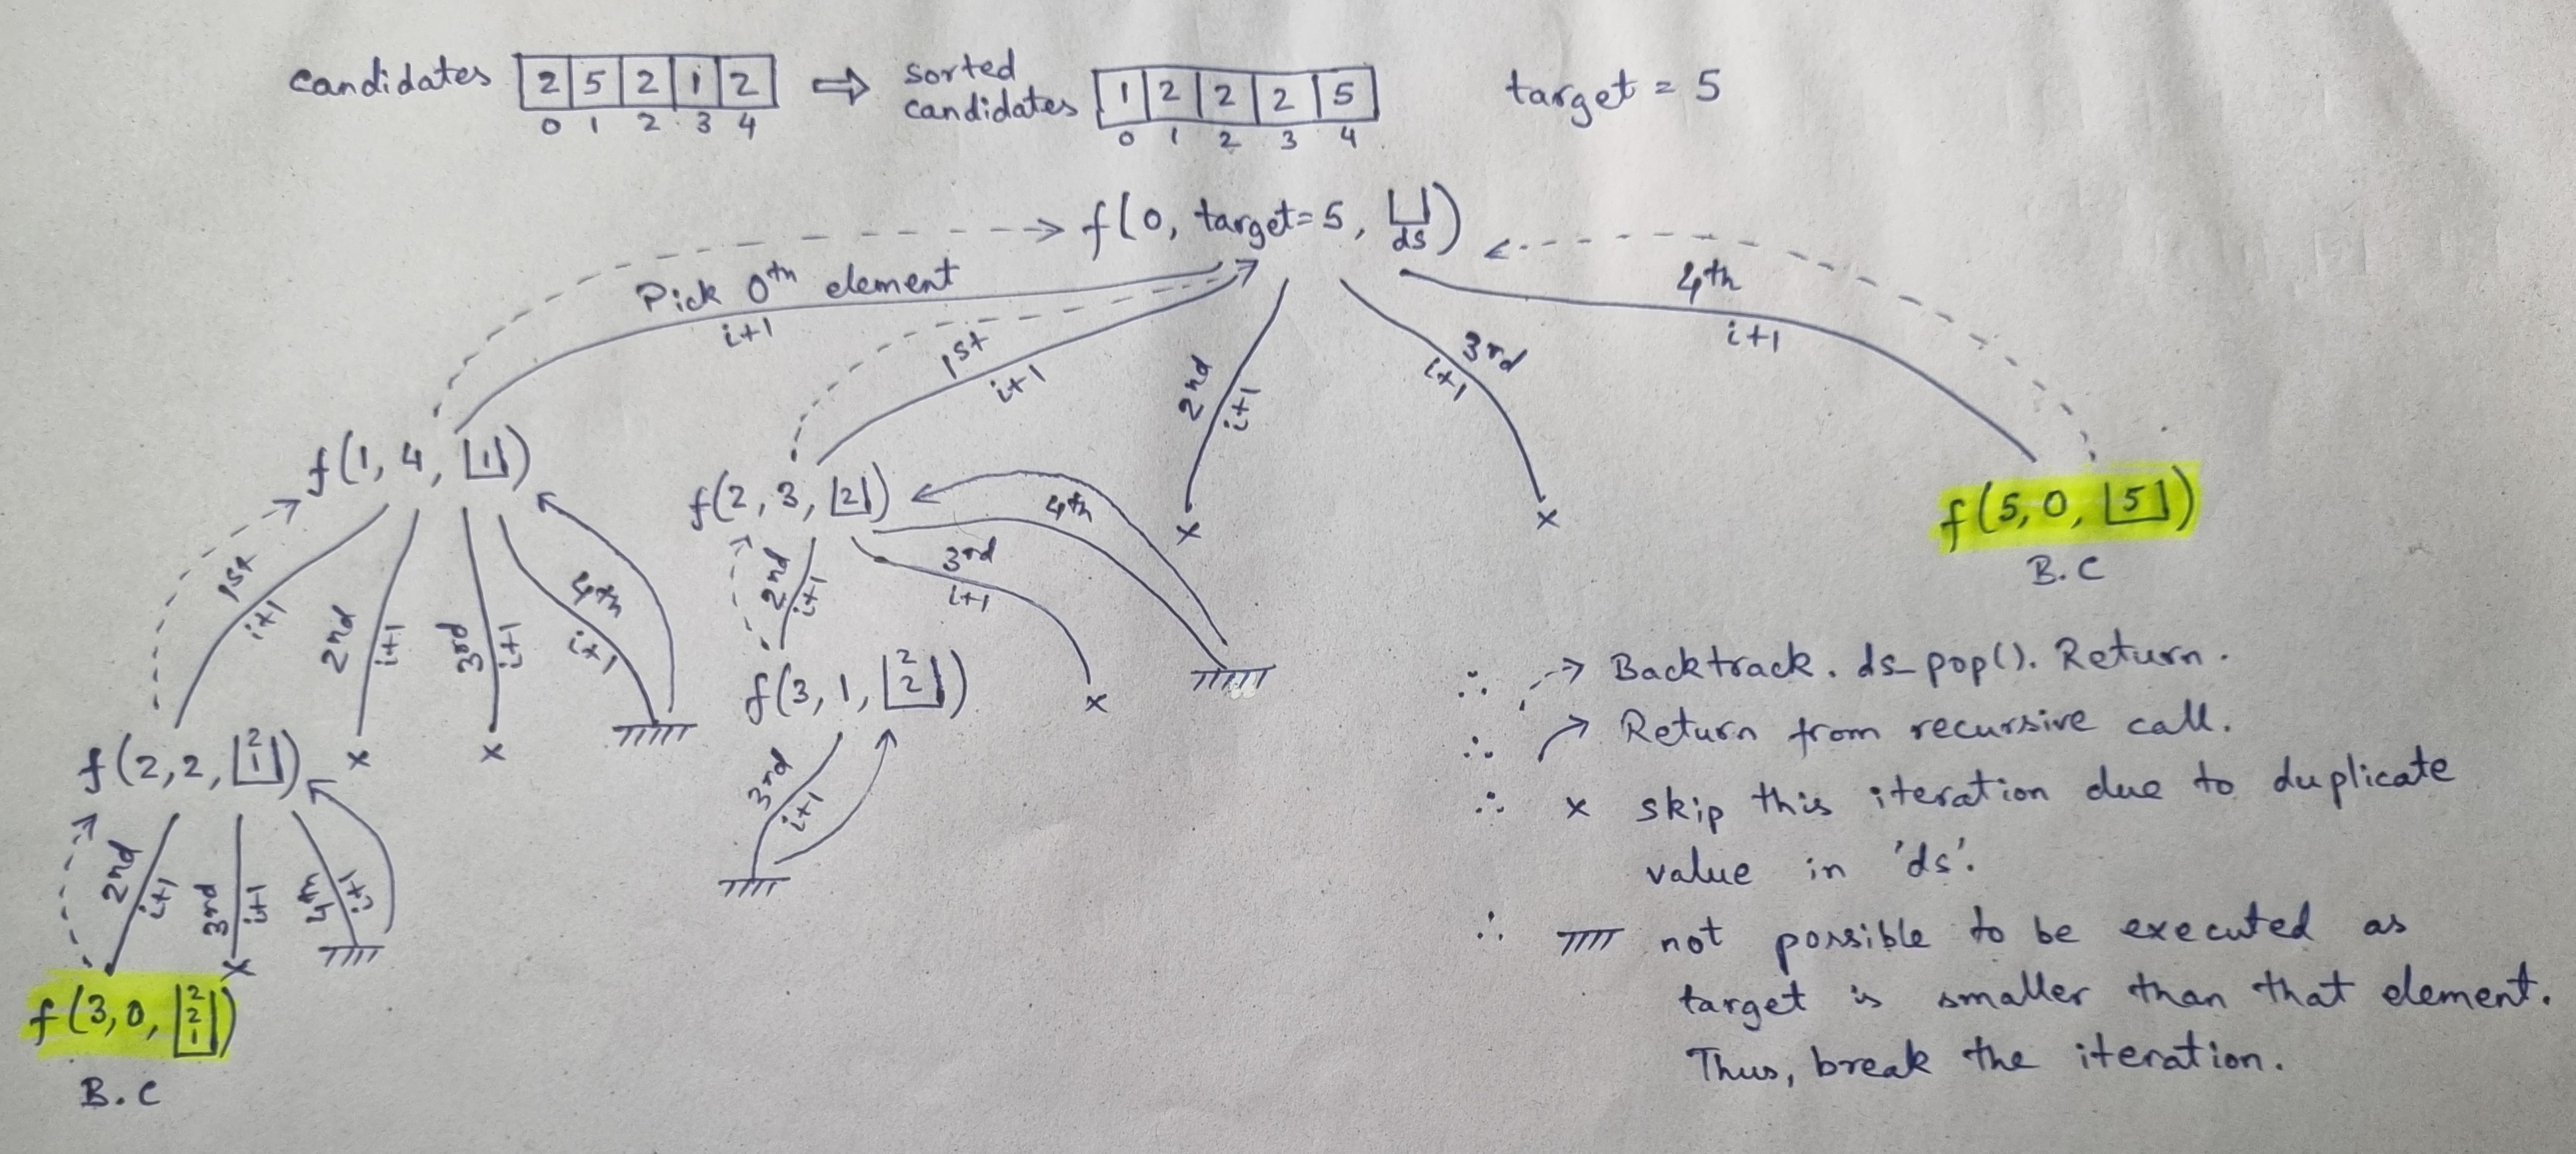 candidates 2 5 2 1 2 ⇒ sorted candidates 1 2 2 2 5 target = 5
0 1 2 3 4 0 1 2 3 4
f(0, target=5, ds)
Pick 0th element
i+1
1st
i+1
2nd
i+1
3rd
i+1
4th
i+1
f(1, 4, 1)
f(2, 3, 2)
f(5, 0, 5)
B.C
1st
i+1
2nd
i+1
3rd
i+1
4th
i+1
2nd
i+1
3rd
i+1
4th
x
x
f(2, 2, 2 1)
x
x
f(3, 1, 2 2)
x
2nd
i+1
3rd
i+1
4th
i+1
3rd
i+1
x
f(3, 0, 2 2 1)
B.C
∴ --> Backtrack. ds_pop(). Return.
∴ → Return from recursive call.
∴ x skip this iteration due to duplicate
value in 'ds'.
∴ not possible to be executed as
target is smaller than that element.
Thus, break the iteration.